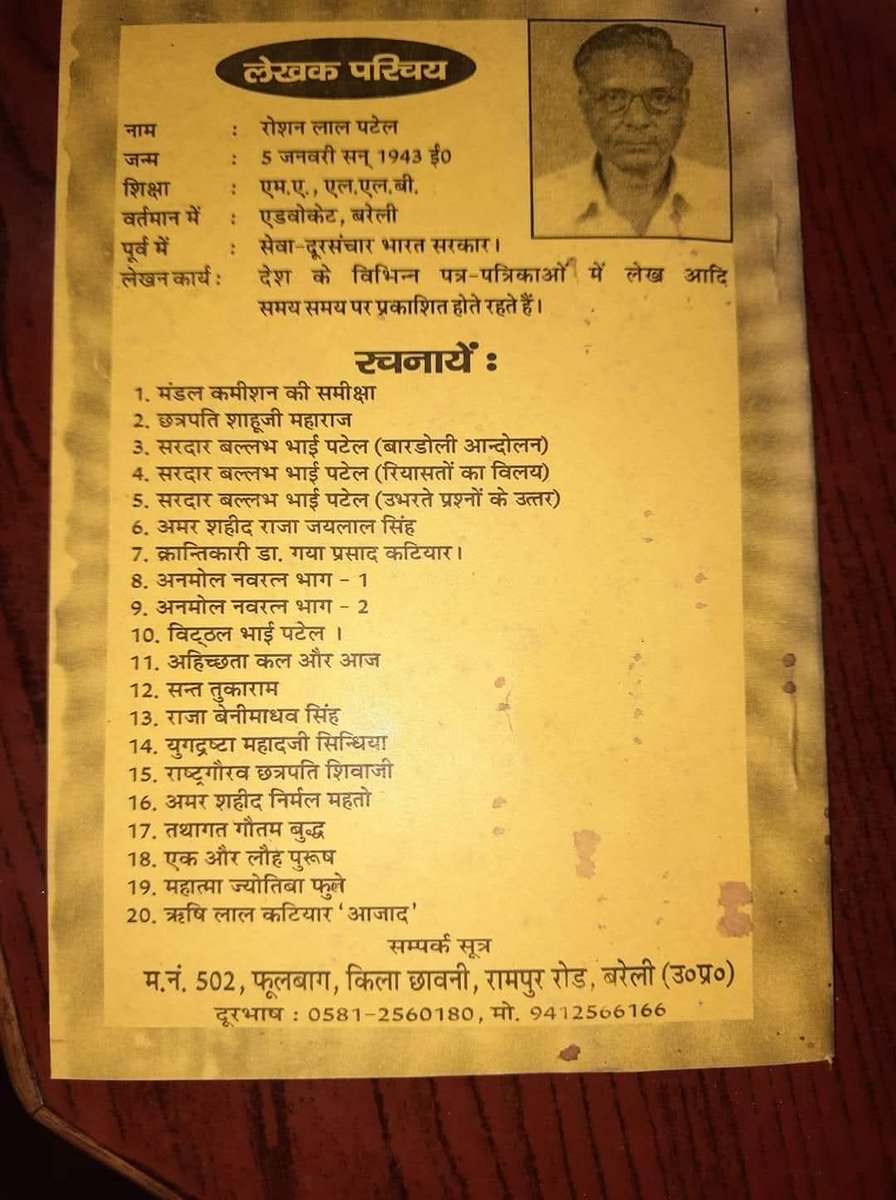 लेखक परिचय
नाम : रोशन लाल पटेल
जन्म : 5 जनवरी सन् 1943 ई0
शिक्षा : एम.ए., एल.एल.बी.
वर्तमान में : एडवोकेट, बरेली
पूर्व में : सेवा-दूरसंचार भारत सरकार।
लेखन कार्य : देश के विभिन्न पत्र-पत्रिकाओं में लेख आदि
समय समय पर प्रकाशित होते रहते हैं।
रचनायें :
1. मंडल कमीशन की समीक्षा
2. छत्रपति शाहूजी महाराज
3. सरदार बल्लभ भाई पटेल (बारडोली आन्दोलन)
4. सरदार बल्लभ भाई पटेल (रियासतों का विलय)
5. सरदार बल्लभ भाई पटेल (उभरते प्रश्नों के उत्तर)
6. अमर शहीद राजा जयलाल सिंह
7. क्रान्तिकारी डा. गया प्रसाद कटियार।
8. अनमोल नवरत्न भाग - 1
9. अनमोल नवरत्न भाग - 2
10. विट्ठल भाई पटेल ।
11. अहिच्छता कल और आज
12. सन्त तुकाराम
13. राजा बेनीमाधव सिंह
14. युगद्रष्टा महादजी सिन्धिया
15. राष्ट्रगौरव छत्रपति शिवाजी
16. अमर शहीद निर्मल महतो
17. तथागत गौतम बुद्ध
18. एक और लौह पुरूष
19. महात्मा ज्योतिबा फुले
20. ऋषि लाल कटियार 'आजाद'
सम्पर्क सूत्र
म.नं. 502, फूलबाग, किला छावनी, रामपुर रोड, बरेली (उ०प्र०)
दूरभाष : 0581-2560180, मो. 9412566166